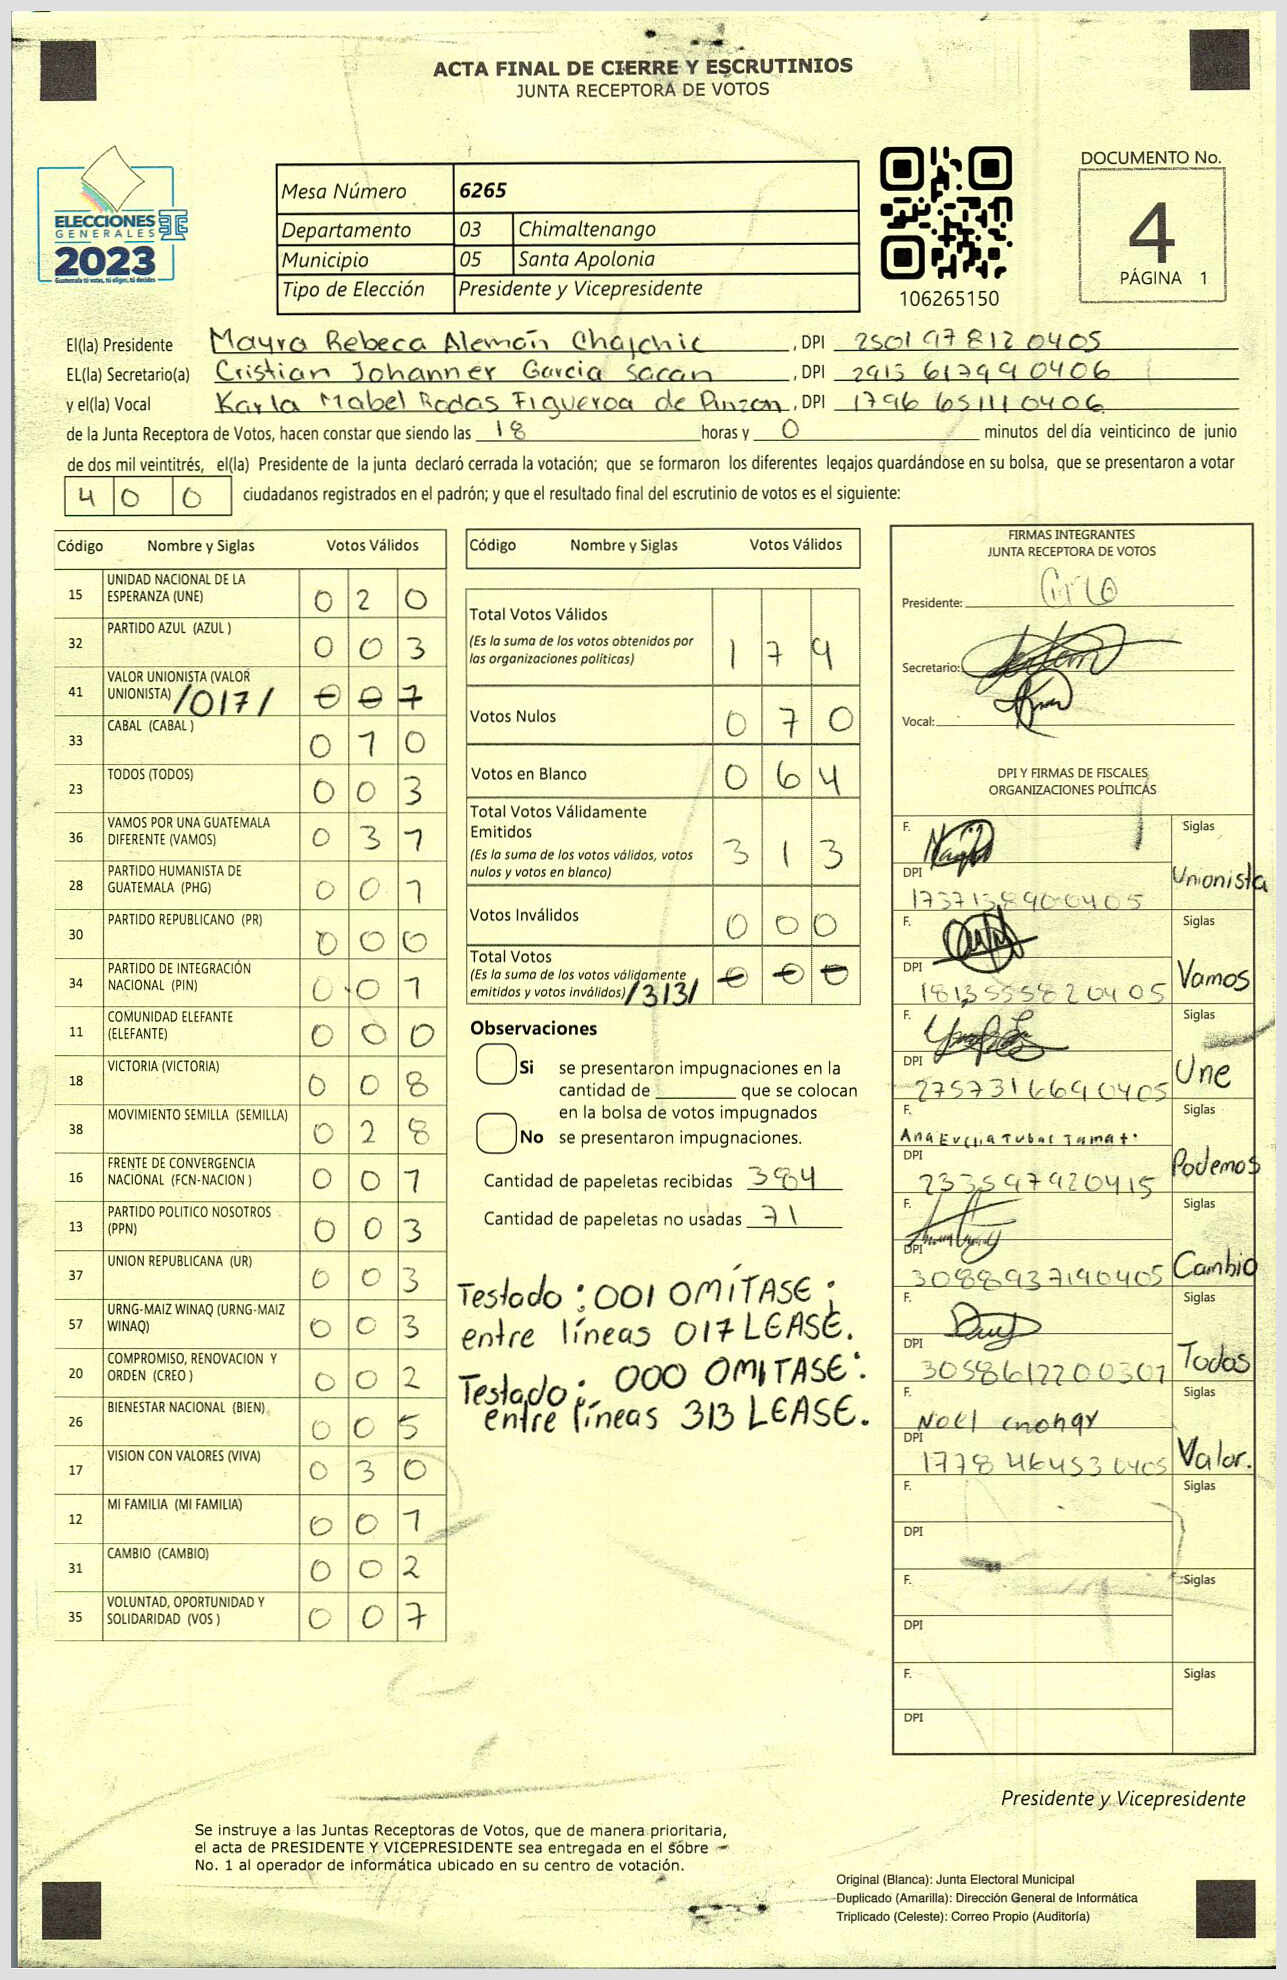 ACTA FINAL DE CIERRE Y ESCRUTINIOS
JUNTA RECEPTORA DE VOTOS
ELECCIONES
GENERALES
2023
Guatemala tú votas, tú eliges, tú decides
Mesa Número 6265
Departamento 03 Chimaltenango
Municipio 05 Santa Apolonia
Tipo de Elección Presidente y Vicepresidente
106265150
DOCUMENTO No.
4
PÁGINA 1
El(la) Presidente Mayra Rebeca Alemán Chajchic, DPI 2501 97812 0405
EL(la) Secretario(a) Cristian Johanner Garcia Sacan, DPI 2913 61799 0406
y el(la) Vocal Karla Mabel Rodas Figueroa de Pinzon, DPI 1796 65111 0406
de la Junta Receptora de Votos, hacen constar que siendo las 18 horas y 0 minutos del día veinticinco de junio
de dos mil veintitrés, el(la) Presidente de la junta declaró cerrada la votación; que se formaron los diferentes legajos guardándose en su bolsa, que se presentaron a votar
400 ciudadanos registrados en el padrón; y que el resultado final del escrutinio de votos es el siguiente:
Código Nombre y Siglas Votos Válidos
15 UNIDAD NACIONAL DE LA ESPERANZA (UNE) 0 2 0
32 PARTIDO AZUL (AZUL ) 0 0 3
41 VALOR UNIONISTA (VALOR UNIONISTA) /017/ 0 0 7
33 CABAL (CABAL ) 0 1 0
23 TODOS (TODOS) 0 0 3
36 VAMOS POR UNA GUATEMALA DIFERENTE (VAMOS) 0 3 1
28 PARTIDO HUMANISTA DE GUATEMALA (PHG) 0 0 1
30 PARTIDO REPUBLICANO (PR) 0 0 0
34 PARTIDO DE INTEGRACIÓN NACIONAL (PIN) 0 0 1
11 COMUNIDAD ELEFANTE (ELEFANTE) 0 0 0
18 VICTORIA (VICTORIA) 0 0 8
38 MOVIMIENTO SEMILLA (SEMILLA) 0 2 8
16 FRENTE DE CONVERGENCIA NACIONAL (FCN-NACION ) 0 0 1
13 PARTIDO POLITICO NOSOTROS (PPN) 0 0 3
37 UNION REPUBLICANA (UR) 0 0 3
57 URNG-MAIZ WINAQ (URNG-MAIZ WINAQ) 0 0 3
20 COMPROMISO, RENOVACION Y ORDEN (CREO ) 0 0 2
26 BIENESTAR NACIONAL (BIEN) 0 0 5
17 VISION CON VALORES (VIVA) 0 3 0
12 MI FAMILIA (MI FAMILIA) 0 0 1
31 CAMBIO (CAMBIO) 0 0 2
35 VOLUNTAD, OPORTUNIDAD Y SOLIDARIDAD (VOS ) 0 0 7
Código Nombre y Siglas Votos Válidos
Total Votos Válidos 1 7 9
(Es la suma de los votos obtenidos por
las organizaciones políticas)
Votos Nulos 0 7 0
Votos en Blanco 0 6 4
Total Votos Válidamente
Emitidos 3 1 3
(Es la suma de los votos válidos, votos
nulos y votos en blanco)
Votos Inválidos 0 0 0
Total Votos
(Es la suma de los votos válidamente
emitidos y votos inválidos) /313/ 0 0 0
Observaciones
Si se presentaron impugnaciones en la
cantidad de ________ que se colocan
en la bolsa de votos impugnados
No se presentaron impugnaciones.
Cantidad de papeletas recibidas 384
Cantidad de papeletas no usadas 71
Testado: 001 OMÍTASE;
entre líneas 017 LEASE.
Testado: 000 OMITASE:
entre líneas 313 LEASE.
FIRMAS INTEGRANTES
JUNTA RECEPTORA DE VOTOS
Presidente:
Secretario:
Vocal:
DPI Y FIRMAS DE FISCALES
ORGANIZACIONES POLÍTICAS
F. Siglas
DPI 1737138900405 Unionista
F. Siglas
DPI 1813555820405 Vamos
F. Siglas
DPI 2757316690405 Une
F. Siglas
DPI 2335979920415 Podemos
F. Siglas
DPI 3088937190405 Cambio
F. Siglas
DPI 3058612200301 Todos
F. Siglas
DPI 1778464530405 Valor.
F. Siglas
DPI
F. Siglas
DPI
F. Siglas
DPI
Presidente y Vicepresidente
Se instruye a las Juntas Receptoras de Votos, que de manera prioritaria,
el acta de PRESIDENTE Y VICEPRESIDENTE sea entregada en el sobre
No. 1 al operador de informática ubicado en su centro de votación.
Original (Blanca): Junta Electoral Municipal
Duplicado (Amarilla): Dirección General de Informática
Triplicado (Celeste): Correo Propio (Auditoría)